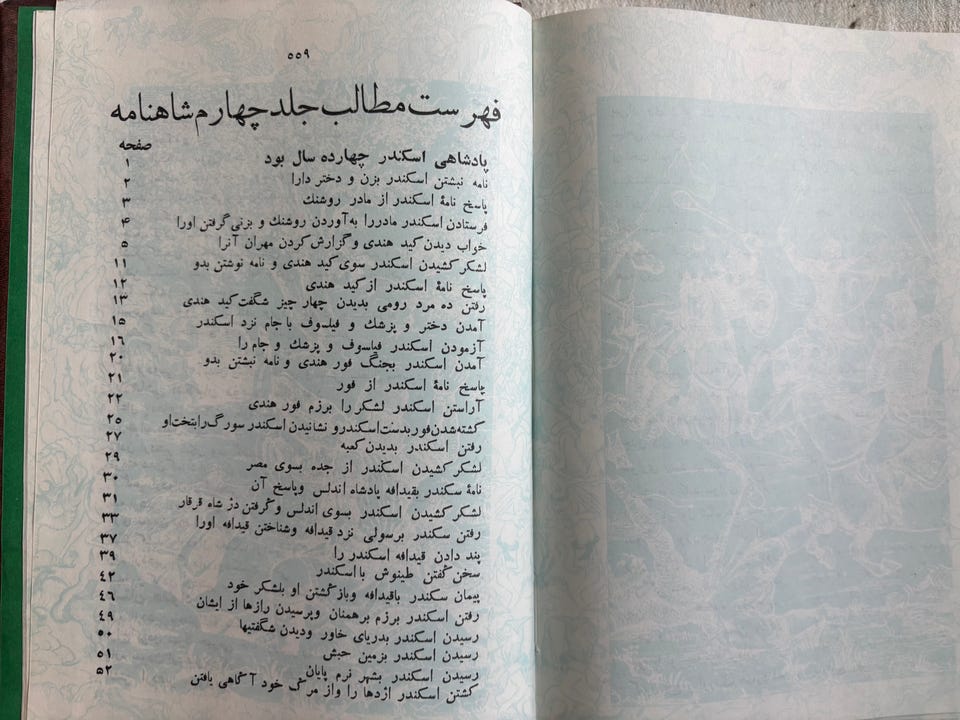 ۵۵۹
فهرست مطالب جلد چهارم شاهنامه
صفحه
پادشاهی اسکندر چهارده سال بود ۱
نامه نبشتن اسکندر بزن و دختر دارا ۲
پاسخ نامهٔ اسکندر از مادر روشنك ۳
فرستادن اسکندر مادررا به آوردن روشنك و بزنی گرفتن اورا ۴
خواب دیدن کید هندی و گزارش کردن مهران آنرا ۵
لشکر کشیدن اسکندر سوی کید هندی و نامه نوشتن بدو ۱۱
پاسخ نامهٔ اسکندر از کید هندی ۱۲
رفتن ده مرد رومی بدیدن چهار چیز شگفت کید هندی ۱۳
آمدن دختر و پزشك و فیلسوف با جام نزد اسکندر ۱۵
آزمودن اسکندر فیلسوف و پزشك و جام را ۱۶
آمدن اسکندر بجنگ فور هندی و نامه نبشتن بدو ۲۰
پاسخ نامهٔ اسکندر از فور ۲۱
آراستن اسکندر لشکر را برزم فور هندی ۲۲
کشته شدن فور بدست اسکندر و نشانیدن اسکندر سورگ را بتخت او ۲۵
رفتن اسکندر بدیدن کعبه ۲۷
لشکر کشیدن اسکندر از جده بسوی مصر ۲۹
نامهٔ سکندر بقیدافه پادشاه اندلس وپاسخ آن ۳۰
لشکر کشیدن اسکندر بسوی اندلس و گرفتن دژ شاه قرقار ۳۱
رفتن سکندر برسولی نزد قیدافه وشناختن قیدافه اورا ۳۳
پند دادن قیدافه اسکندر را ۳۷
سخن گفتن طینوش با اسکندر ۳۹
پیمان سکندر باقیدافه وبازگشتن او بلشکر خود ۴۲
رفتن اسکندر برزم برهمنان وپرسیدن رازها از ایشان ۴۶
رسیدن اسکندر بدریای خاور ودیدن شگفتیها ۴۹
رسیدن اسکندر بزمین حبش ۵۰
رسیدن اسکندر بشهر نرم پایان ۵۱
کشتن اسکندر اژدها را واز مرگ خود آگاهی یافتن ۵۲